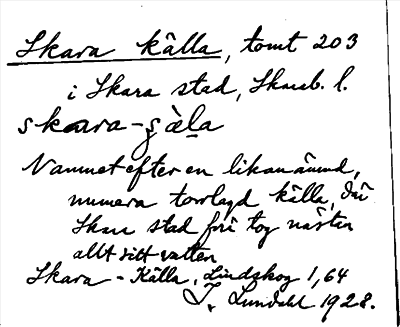 Skara källa, tomt 203
i Skara stad, Skarab. l.
skara-ɕὰla
Namnet efter en likanämnd,
numera torrlagd källa, där
Skara stad förr tog nästan
allt sitt vatten
Skara - Källa, Lindskog 1,64
I. Lundahl 1928.